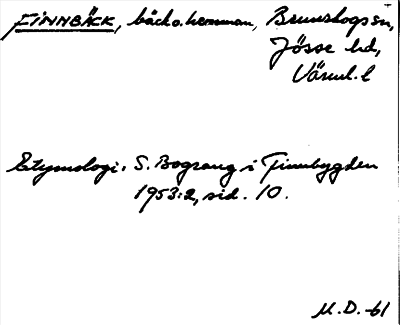 FINNBÄCK, bäck o. hemman, Brunskogs sn,
Jösse hd,
Värml. l
Etymologi: S. Bograng i Finnbygden
1953:2, sid. 10.
M.D. -61